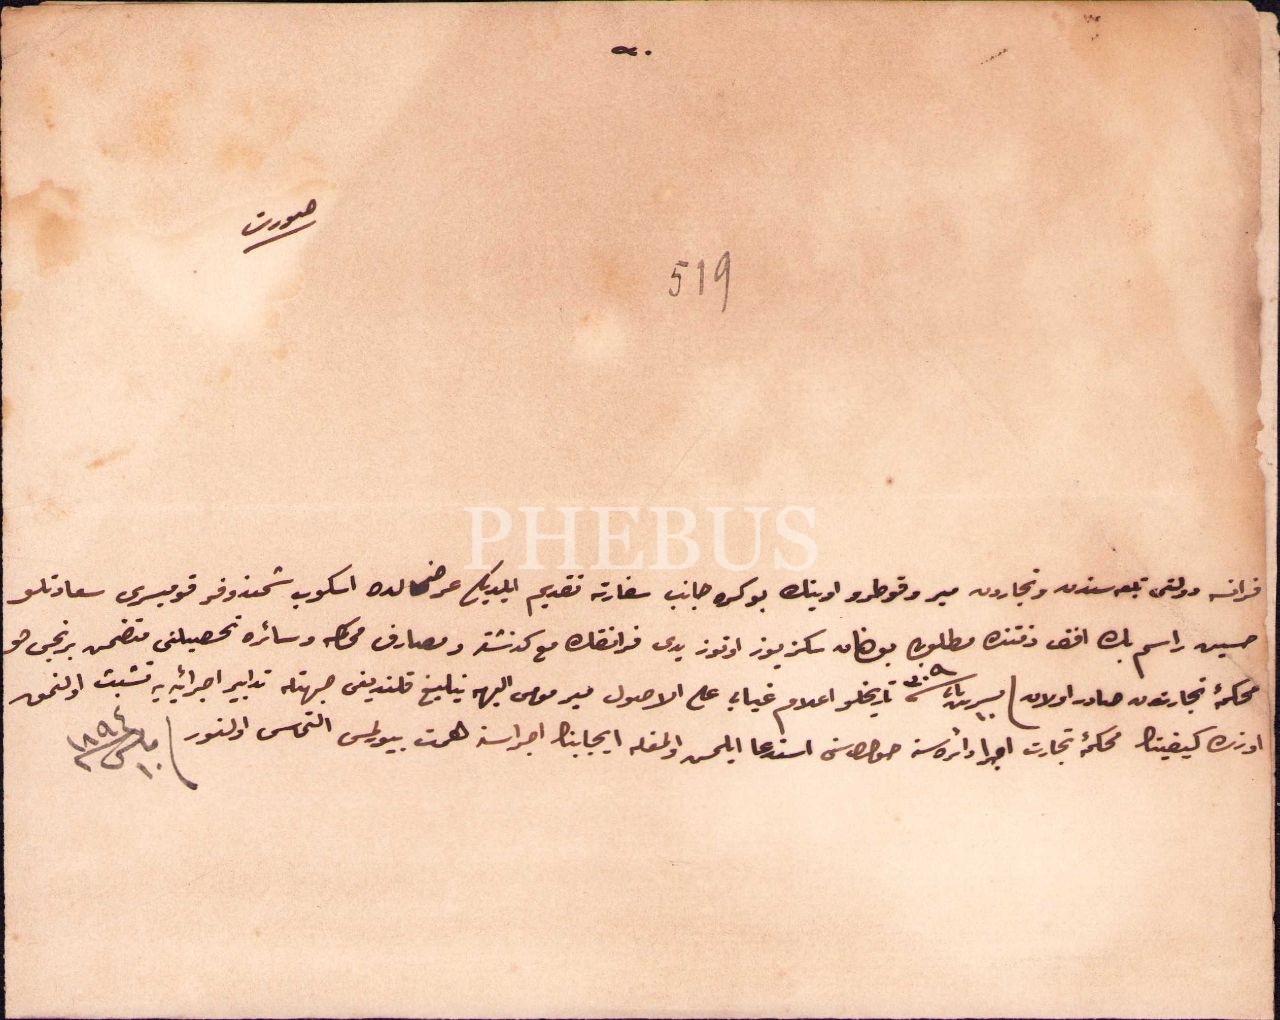 صورت
519
PHEBUS
فرانسه دولتی تبعه سندن وتجاردن میر وقوطرو اوینك بو کره جانب سفارته تقدیم ایلدیکی عرضحالده اسکوب شمندوفر قومیسری سعادتلو
حسین راسم بك افندی ذمتنده مطلوبی بولنان سکز یوز اوتوز یدی فرانقك مع کذشته ومصارف محاکمه وسائره تحصیلنی متضمن برنجی
محکمۀ تجارتدن صادر اولان ٣٠٩ تاریخلو اعلام غیابی علی الاصول میر مومی الیهه تبلیغ قلندیغی جهتله تدابیر اجرائیه یه تشبث اولنمق
اوزره کیفیتك محکمۀ تجارت اجرا دائره سنه حواله سنی استدعا ایلمش اولمغله ایجابنك اجراسنه همت بیورلمسی التماس اولنور
١٠ مارس ١٨٩٤